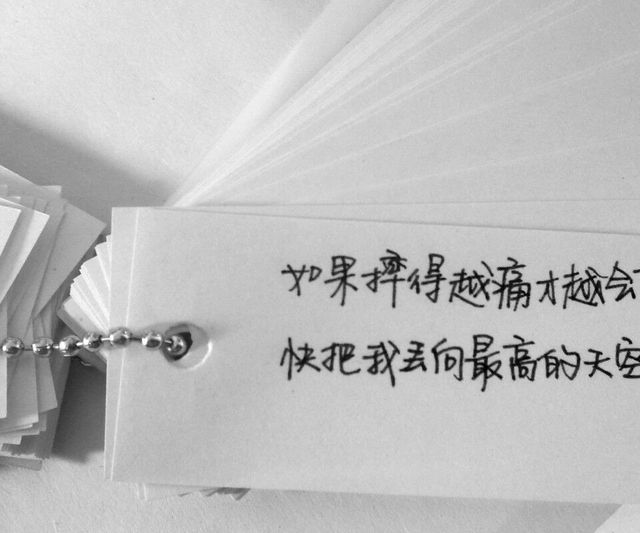 如果摔得越痛才越会
快把我丢向最高的天空